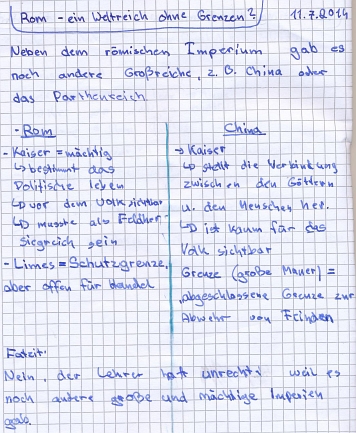 Rom - ein Weltreich ohne Grenzen? 11.7.2014
Neben dem römischen Imperium gab es
noch andere Großreiche, z.B. China oder
das Partherreich.
- Rom
- Kaiser = mächtig
↳ bestimmt das
Politische leben
↳ vor dem Volk sichtbar
↳ musste als Feldherr
siegreich sein
- Limes = Schutzgrenze,
aber offen für Handel
China
→ Kaiser
↳ stellt die Verbindung
zwischen den Göttern
u. den Menschen her.
↳ ist kaum für das
Volk sichtbar
Grenze (große Mauer) =
abgeschlossene Grenze zur
Abwehr von Feinden
Fatzit:
Nein, der Lehrer hatt unrecht, wail es
noch andere große und mächdige Imperien
gab.